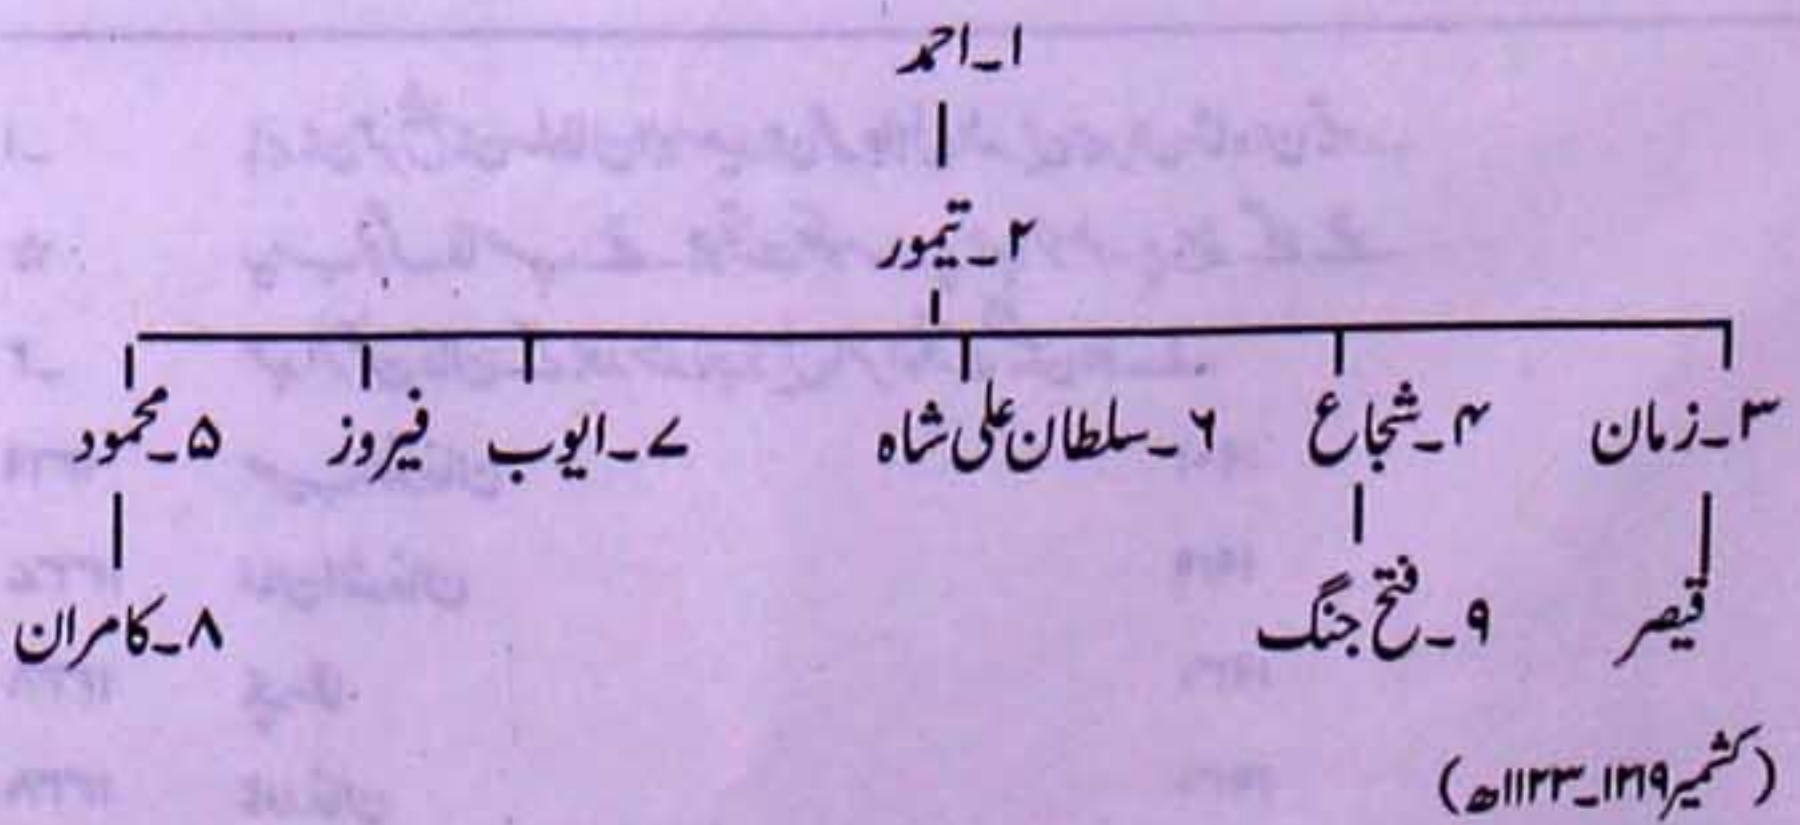 ۱۔احمد
۲۔تیمور
۳۔زمان ۴۔شجاع ۶۔سلطان علی شاہ ۷۔ایوب فیروز ۵۔محمود
قیصر ۹۔فتح جنگ ۸۔کامران
(کشمیر۱۲۱۹۔۱۱۲۳ھ)